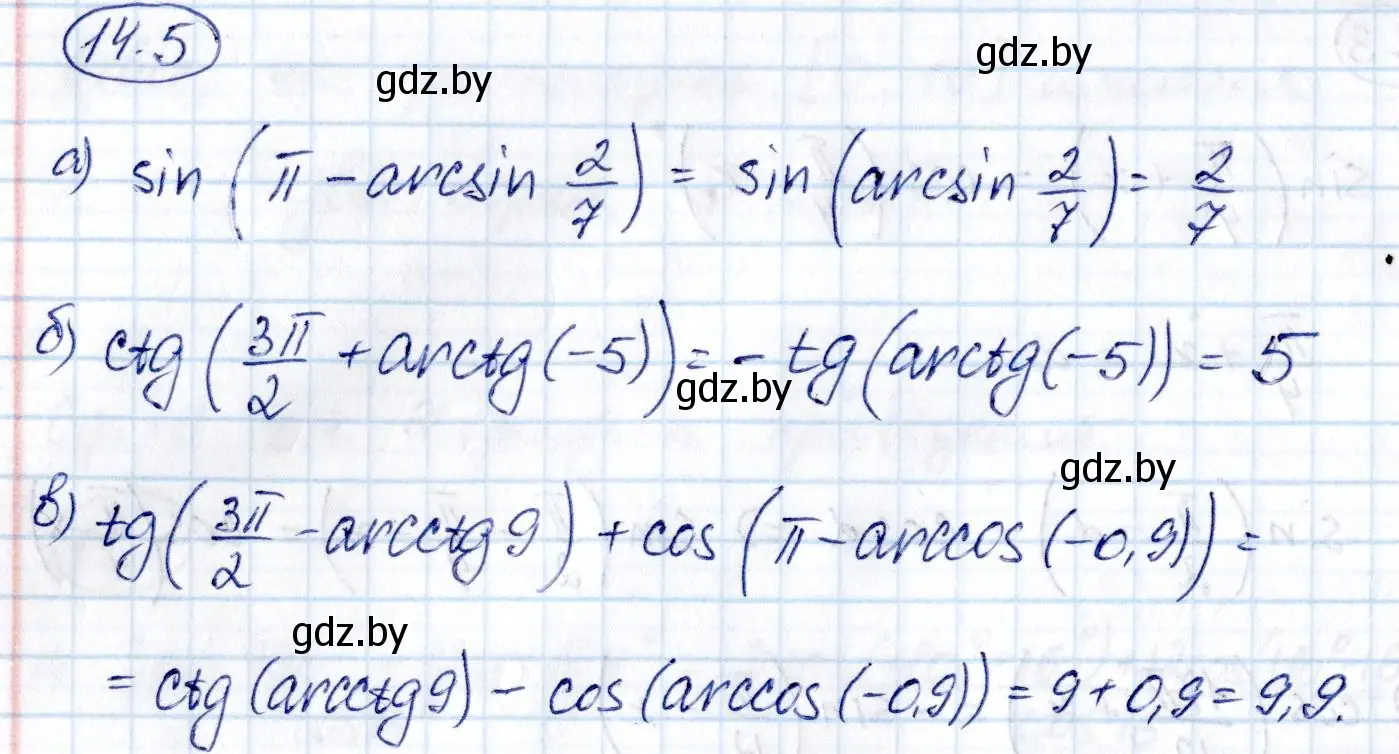 14.5
gdz.by
gdz.by
а) sin (π - arcsin 2/7) = sin (arcsin 2/7) = 2/7
б) ctg (3π/2 + arctg(-5)) = - tg (arctg(-5)) = 5
gdz.by
gdz.by
в) tg (3π/2 - arcctg 9) + cos (π - arccos (-0,9)) =
gdz.by
= ctg (arcctg 9) - cos (arccos (-0,9)) = 9 + 0,9 = 9,9.